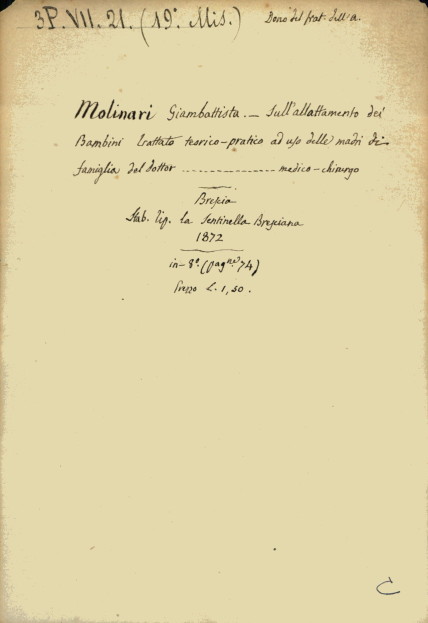 3P. VII. 21. (19° Mis.)
Dono del frat. dell'a.
Molinari Giambattista. — Sull'allattamento dei
Bambini trattato teorico-pratico ad uso delle madri di
famiglia del dottor .................. medico-chirurgo
Brescia
Stab. Tip. la Sentinella Bresciana
1872
in-8.° (pagne 74)
Prezzo L. 1,50.
C